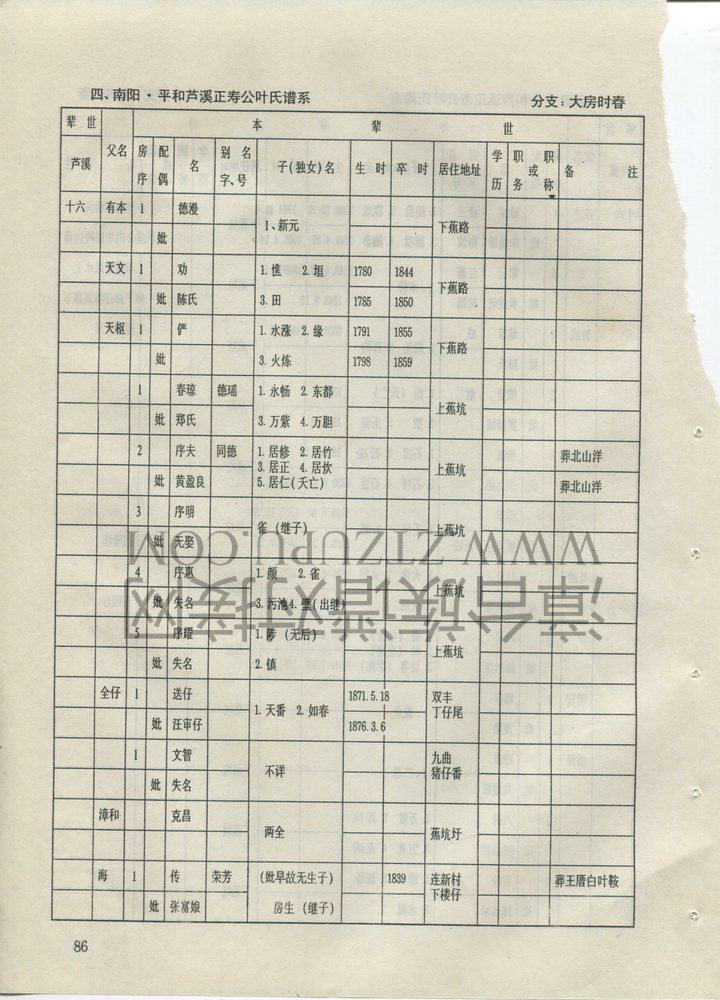 四、南阳·平和芦溪正寿公叶氏谱系 分支：大房时春
辈世 本 辈 世
芦溪 父名 房序 配偶 名 别名字、号 子(独女)名 生时 卒时 居住地址 学历 职务或职称 备注
十六 有本 1 德漫 1、新元 下蕉路
妣
天文 1 劝 1. 惟 2. 垣 1780 1844 下蕉路
妣 陈氏 3. 田 1785 1850
天枢 1 俨 1. 水涨 2. 缘 1791 1855 下蕉路
妣 3. 火炼 1798 1859
1 春琼 德瑶 1. 永畅 2. 东都 上蕉坑
妣 郑氏 3. 万紫 4. 万胆
2 序夫 同德 1. 居修 2. 居竹 上蕉坑 葬北山洋
3. 居正 4. 居炊
妣 黄盈良 5. 居仁(夭亡) 葬北山洋
3 序明 雀 (继子) 上蕉坑
妣 无娶
4 序惠 1. 颜 2. 雀 上蕉坑
妣 失名 3. 污池 4. 璧(出继)
5 序耀 1. 陟 (无后) 上蕉坑
妣 失名 2. 镇
全仔 1 送仔 1. 天番 2. 如春 1871.5.18 双丰
妣 汪审仔 1876.3.6 丁仔尾
1 文智 不详 九曲
妣 失名 猪仔番
漳和 克昌 两全 蕉坑圩
海 1 传 荣芳 (妣早故无生子) 1839 连新村 葬王厝白叶鞍
妣 张富娘 房生 (继子) 下楼仔
86
WWW.ZTZUPU.COM
漳台族谱对接网